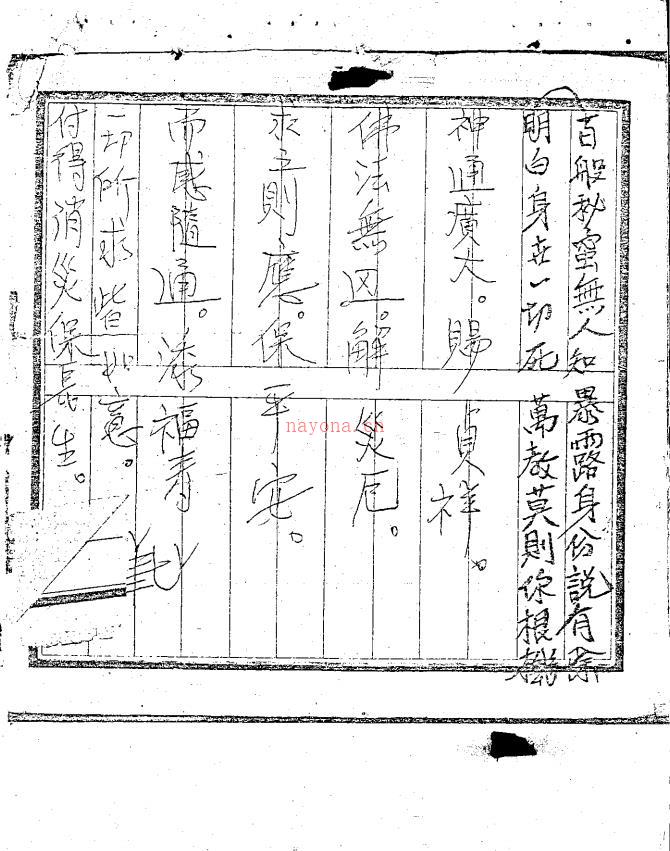 百般秘密無人知 暴露身份說有除
明白身在一切死 萬教莫則你根機
神通廣大。賜貞祥。
佛法無边。解災厄。
求之則應。保平安。
而感隨通。添福寿
一切所求皆如意。
付得消災保長生。
nayona.cn